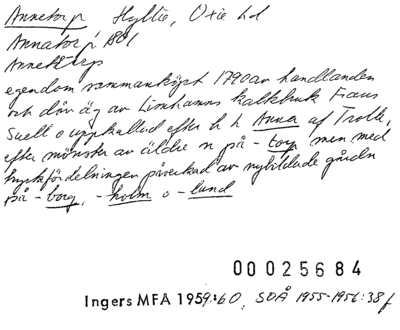 Annetorp Hyllie, Oxie hd
Annatorp 1801
Annetorp
egendom sammanköpt 1790 av handlanden
och dåv. äg av Limhamns kalkbruk Frans
Suell o uppkallad efter h h Anna af Trolle,
efter mönster av äldre n på -torp men med
tryckfördelningen påverkad av nybildade gårdn
på -borg, -holm o -lund
00025684
Ingers MFA 1959:60, SOÅ 1955-1956:38f